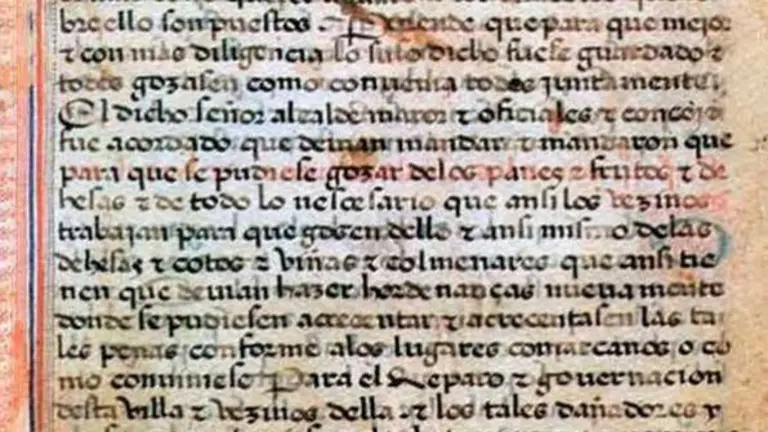 brello son puestos. E Por ende que para que mejor
z con mas diligencia lo suso dicho fuese guardado z
todos gozasen como convenia todos juntamente
El dicho señor alcalde mayor z oficiales z concejo
fue acordado que devian mandar z mandaron que
para que se pudiese gozar de los panes z frutos z de
hesas z de todo lo nescesario que ansi los vezinos
trabajan para que gosen dello z ansi mismo de las
dehesas z cotos z viñas z colmenares que ansi tie
nen que devian hazer hordenanças nuevamente
donde se pudiesen acrecentar z acrecentasen las ta
les penas conforme a los lugares comarcanos o co
mo conviniese Para el Reparo z governacion
desta villa z vezinos della z los tales dañadores y